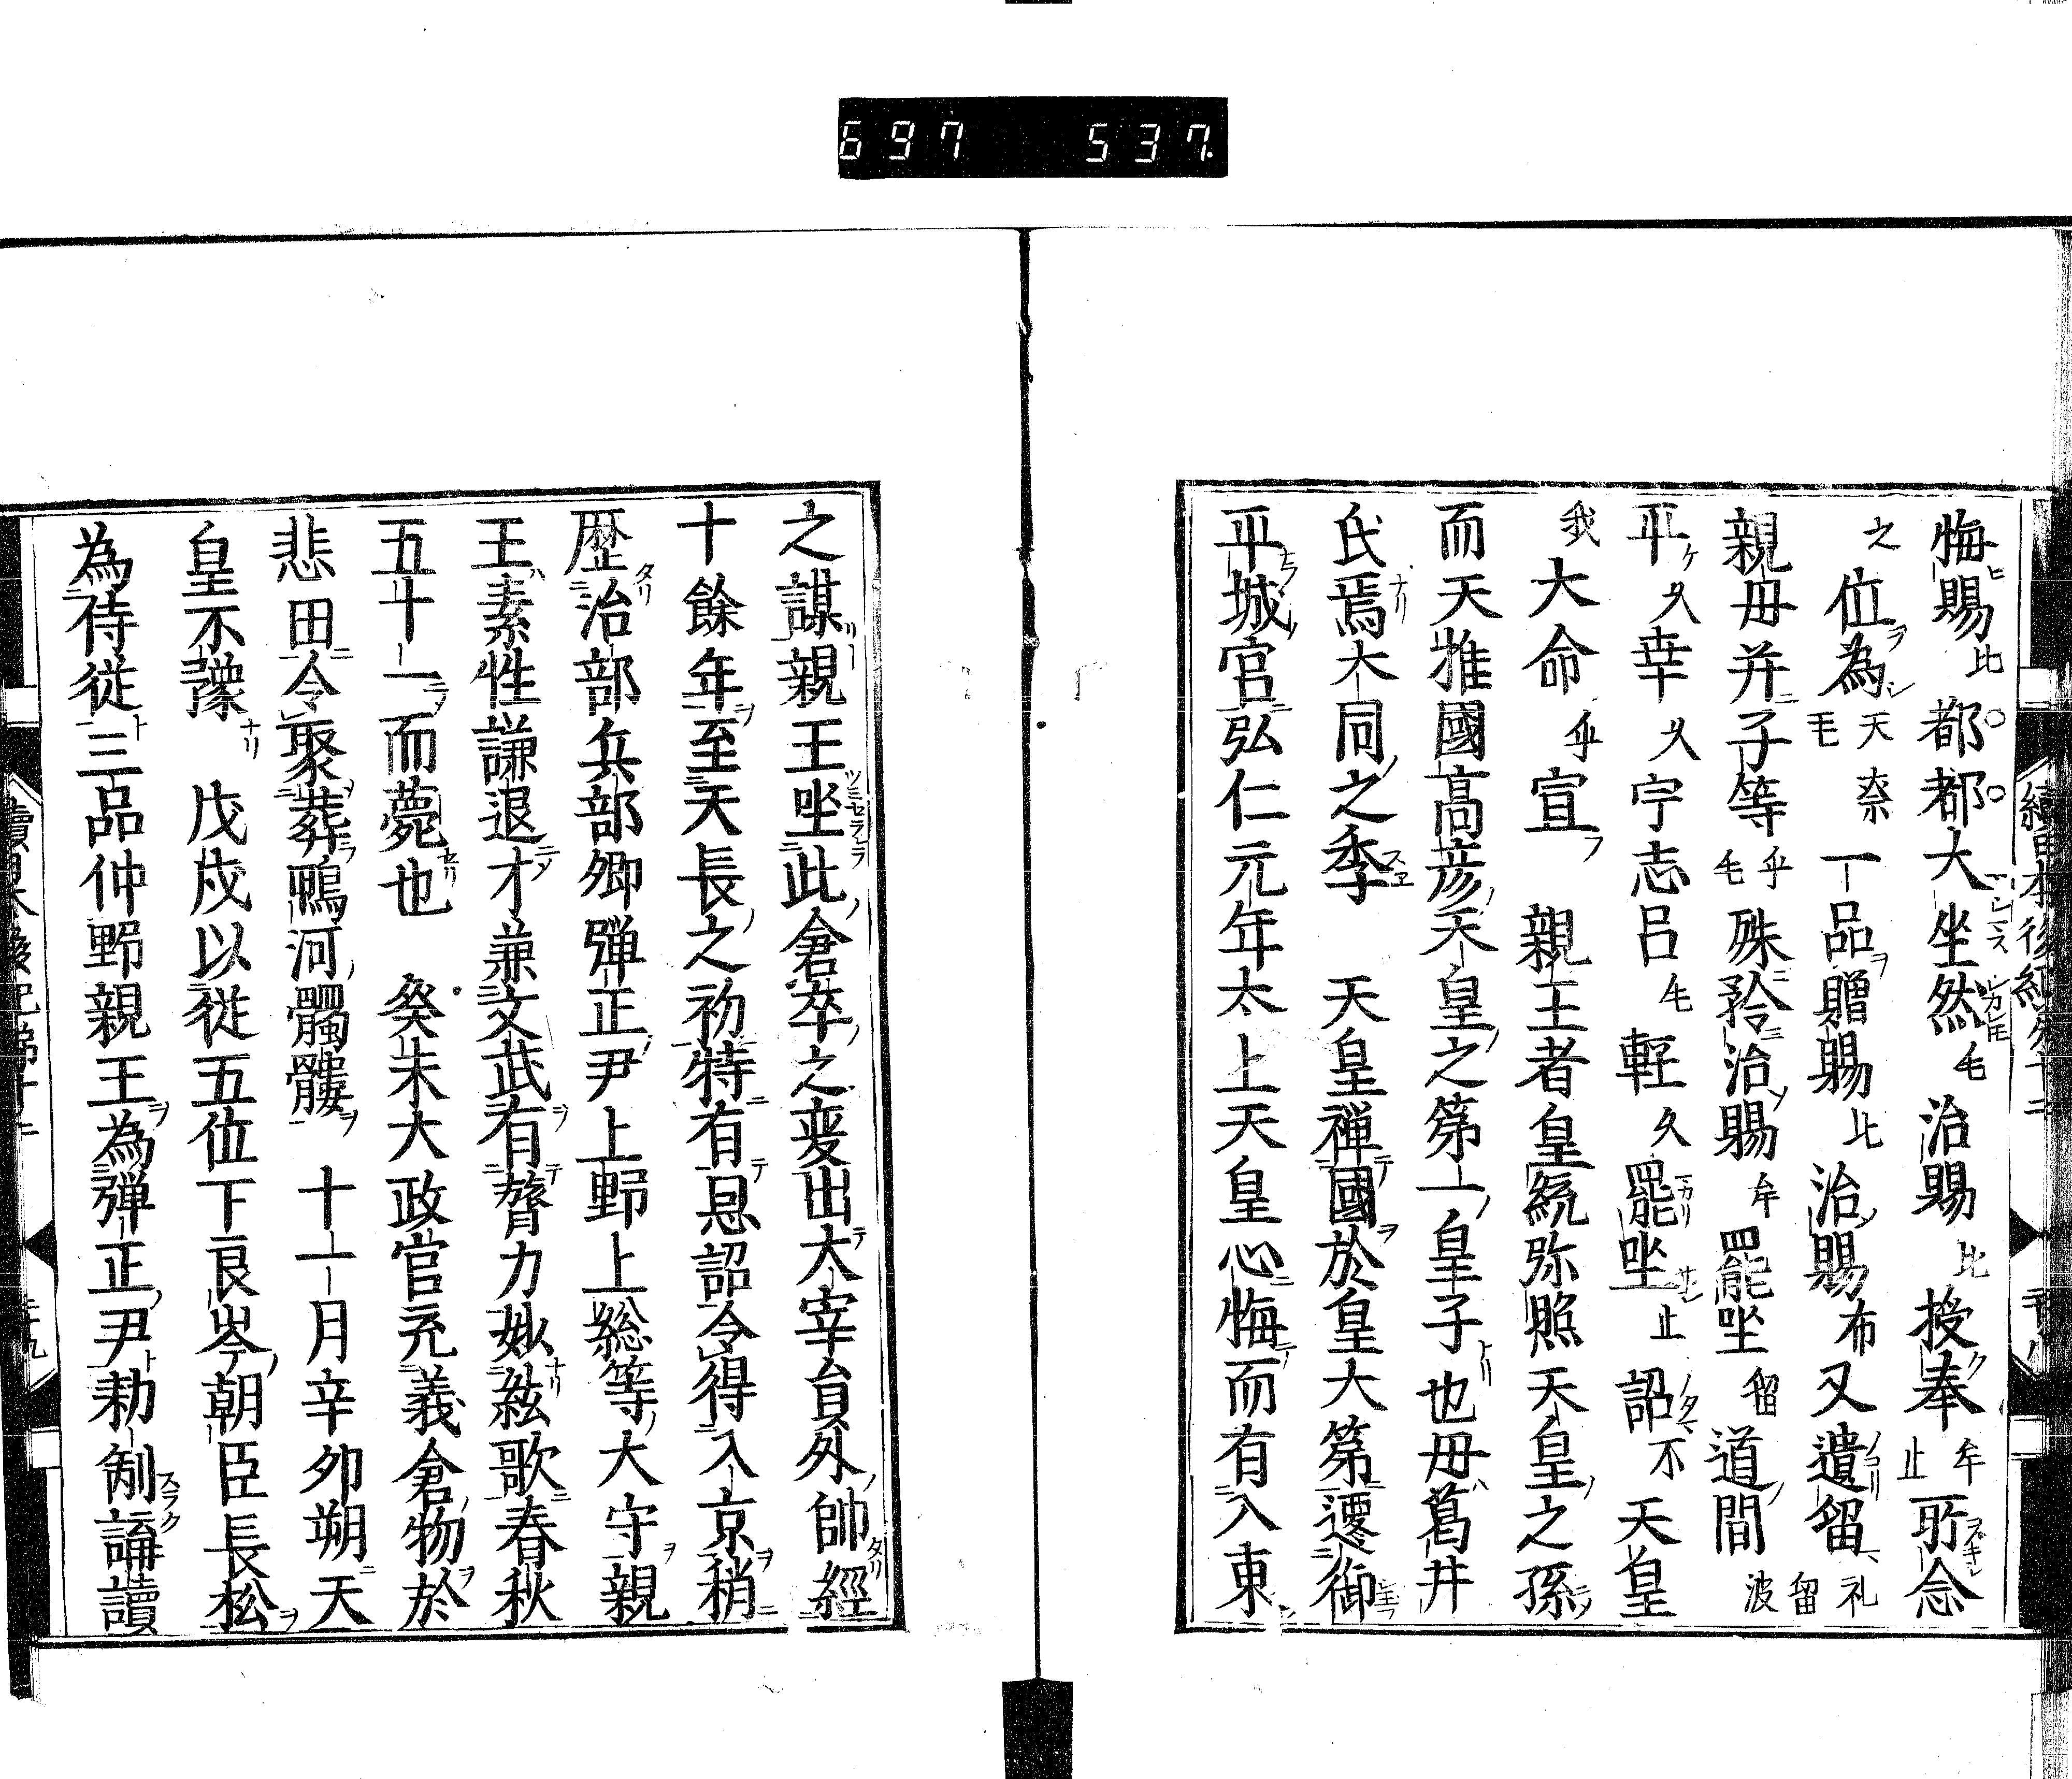 697 537.
悔賜比都都大坐然毛治賜比授奉牟止所念
之位為天毛奈一品贈賜比治賜布又遺留礼留波
親母并子等乎毛殊矜治賜牟罷坐留道間
平久幸久宇志呂毛輕久罷坐止詔不天皇
我大命乎宣親王者皇統弥照天皇之孫
而天推國高彦天皇之第一皇子也母葛井
氏焉大同之季天皇禅國於皇大弟遷御
平城宮弘仁元年太上天皇心悔而有入東
之謀親王坐此倉卒之变出大宰員外帥經
十餘年至天長之初特有恩詔令得入京稍
歷治部兵部卿弾正尹上野上総等大守親
王素性謙退才兼文武有膂力妙絃歌春秋
五十一而薨也癸未大政官充義倉物於
悲田令聚葬鴨河髑髏十一月辛卯朔天
皇不豫戊戌以従五位下良岑朝臣長松
為侍従三品仲野親王為弾正尹勅制論讀